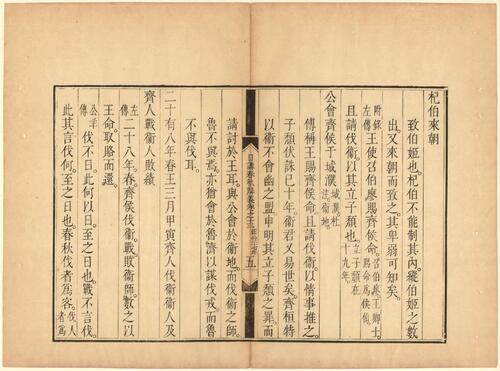 杞伯來朝
致伯姬也。杞伯不能制其內,縱伯姬之數
出,又來朝而致之,其卑弱可知矣。
附錄左傳王使召伯廖賜齊侯命。召伯廖,王卿士。賜命爲侯伯。
且請伐衞,以其立子頹也。立子頹在十九年。
公會齊侯于城濮。城濮,杜注衞地。
傳稱王賜齊侯命,且請伐衞,以情事推之,
子頹伏誅已十年,衞君又易世矣,齊桓特
以衞不會幽之盟,申明其立子頹之罪,而
日講春秋解義卷之十三 五
請討於王耳。與公會於衞地,而伐衞之師
魯不與焉,亦猶會於魯濟以謀伐戎,而魯
不與伐耳。
二十有八年春王三月甲寅齊人伐衞衞人及
齊人戰衞人敗績
左傳二十八年春,齊侯伐衞,戰敗衞師,數之以
王命,取賂而還。
公羊傳伐不日,此何以日,至之日也。戰不言伐,
此其言伐何,至之日也。春秋伐者爲客,伐人者爲